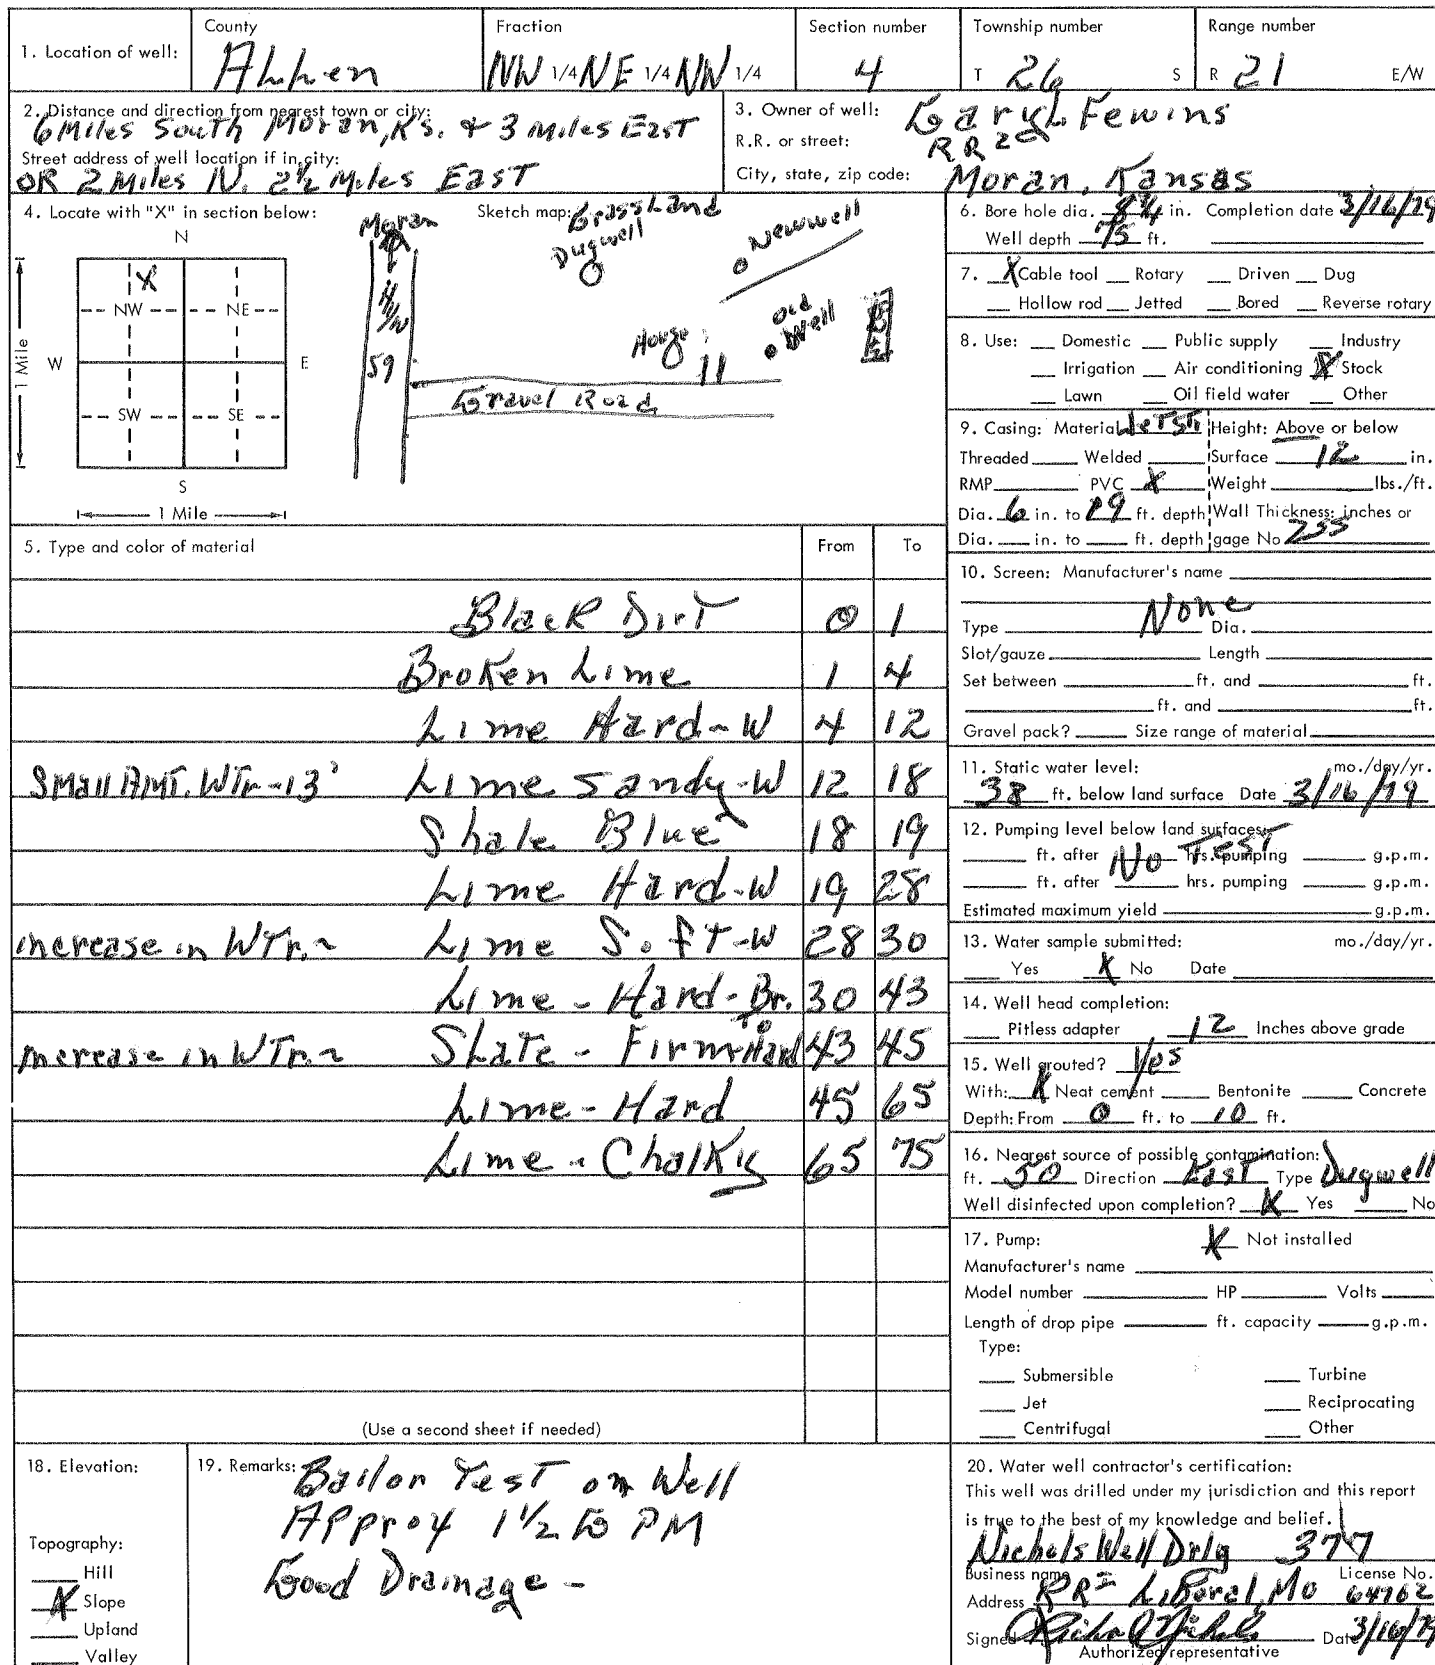 1. Location of well: County Fraction Section number Township number Range number
Allen NW 1/4 NE 1/4 NW 1/4 4 T 26 S R 21 E/W
2. Distance and direction from nearest town or city:
6 Miles South Moran, Ks. & 3 Miles EAST
Street address of well location if in city:
OR 2 Miles N. 2½ Miles EAST
3. Owner of well: Gary L. Fewins
R.R. or street: RR 2
City, state, zip code: Moran, Kansas
4. Locate with "X" in section below:
N
X
NW NE
W E
SW SE
S
1 Mile
1 Mile
Sketch map:
Moran
Grassland
Dugwell
Newwell
Old Well
House
HWY
59
Gravel Road
6. Bore hole dia. 8¾ in. Completion date 3/16/79
Well depth 75 ft.
7. X Cable tool Rotary Driven Dug
Hollow rod Jetted Bored Reverse rotary
8. Use: Domestic Public supply Industry
Irrigation Air conditioning X Stock
Lawn Oil field water Other
9. Casing: Material Height: Above or below
Threaded Welded Surface 12 in.
RMP PVC X Weight lbs./ft.
Dia. 6 in. to 19 ft. depth Wall Thickness: inches or
Dia. in. to ft. depth gage No 255
5. Type and color of material From To
Black Dirt 0 1
Broken Lime 1 4
Lime Hard-W 4 12
Small AMT. WTr-13' Lime Sandy-W 12 18
Shale Blue 18 19
Lime Hard-W 19 28
increase in WTr.~ Lime Soft-W 28 30
Lime - Hard - Br. 30 43
increase in WTr.~ Slate - Firm to Hard 43 45
Lime - Hard 45 65
Lime - Chalky 65 75
(Use a second sheet if needed)
10. Screen: Manufacturer's name
None
Type Dia.
Slot/gauze Length
Set between ft. and ft.
ft. and ft.
Gravel pack? Size range of material
11. Static water level: mo./day/yr.
38 ft. below land surface Date 3/16/79
12. Pumping level below land surfaces:
ft. after No Test hrs. pumping g.p.m.
ft. after hrs. pumping g.p.m.
Estimated maximum yield g.p.m.
13. Water sample submitted: mo./day/yr.
Yes X No Date
14. Well head completion:
Pitless adapter 12 Inches above grade
15. Well grouted? Yes
With: X Neat cement Bentonite Concrete
Depth: From 0 ft. to 10 ft.
16. Nearest source of possible contamination:
ft. 50 Direction East Type Dugwell
Well disinfected upon completion? X Yes No
17. Pump: X Not installed
Manufacturer's name
Model number HP Volts
Length of drop pipe ft. capacity g.p.m.
Type:
Submersible Turbine
Jet Reciprocating
Centrifugal Other
18. Elevation:
Topography:
Hill
X Slope
Upland
Valley
19. Remarks: Bailor Test on Well
Approx 1½ GPM
Good Drainage -
20. Water well contractor's certification:
This well was drilled under my jurisdiction and this report
is true to the best of my knowledge and belief.
Nichols Well Drlg 377
Business name License No.
Address RR I Liberal, Mo 64762
Signed Date 3/16/79
Authorized representative